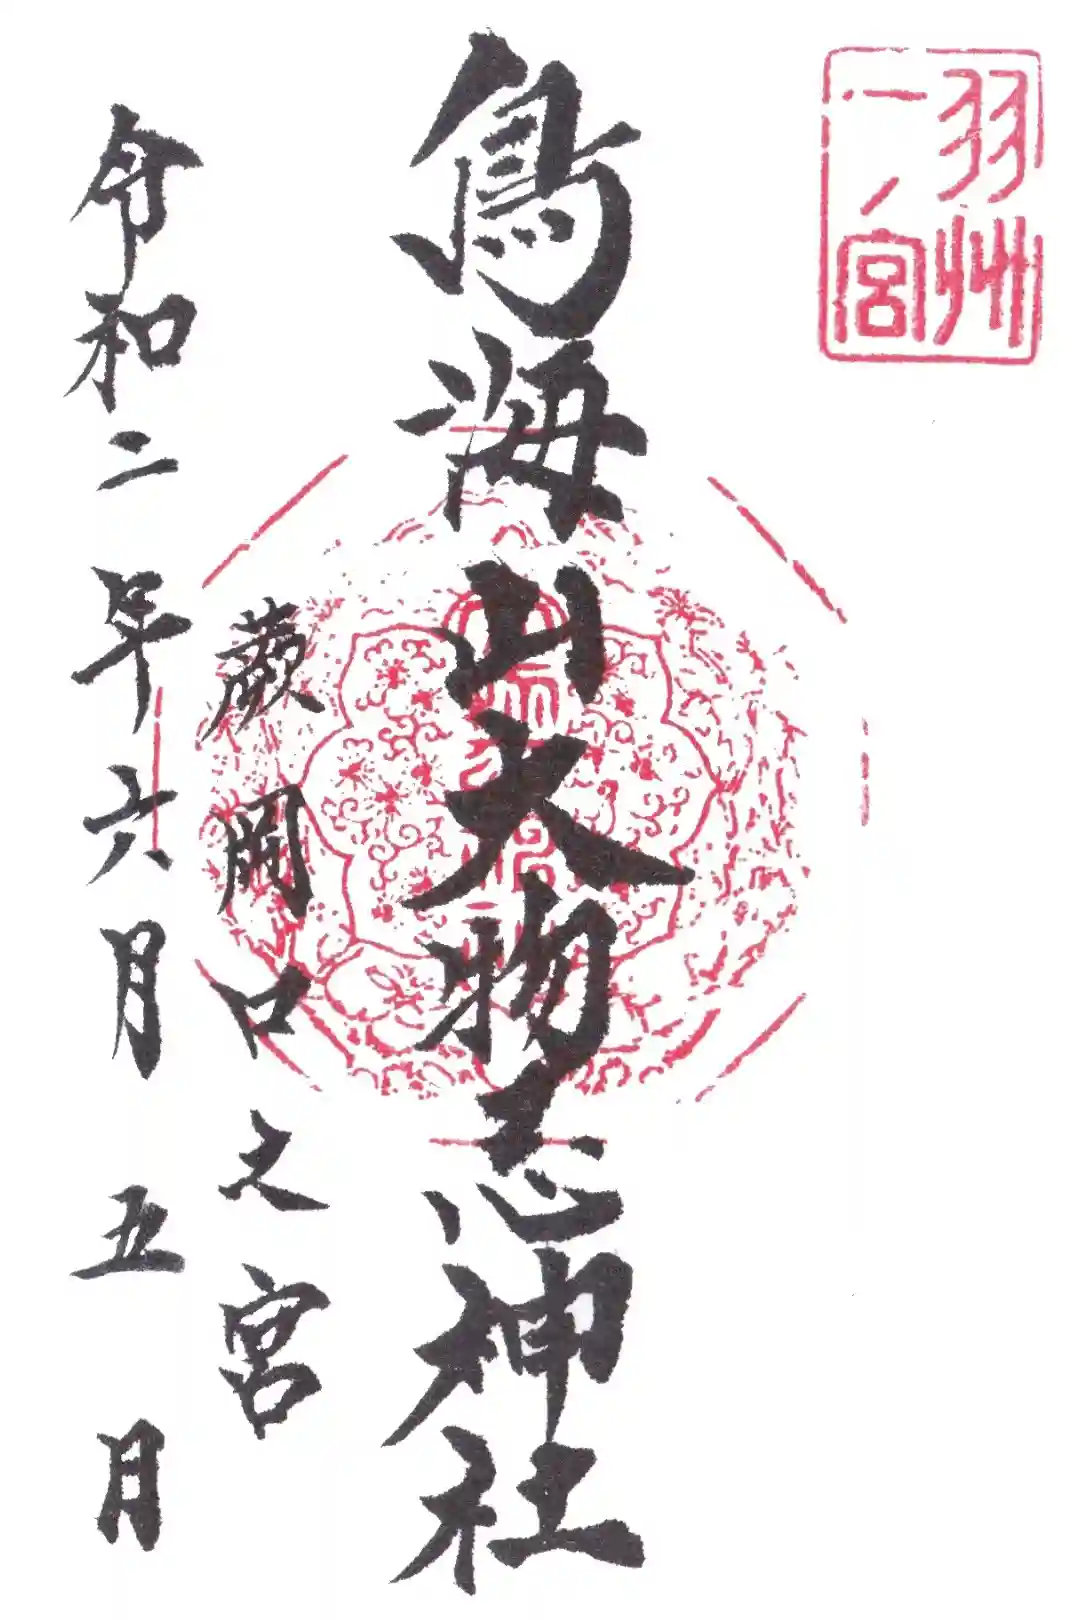 羽州
一ノ宮
鳥海山大物忌神社
蕨岡口之宮
令和二年六月五日